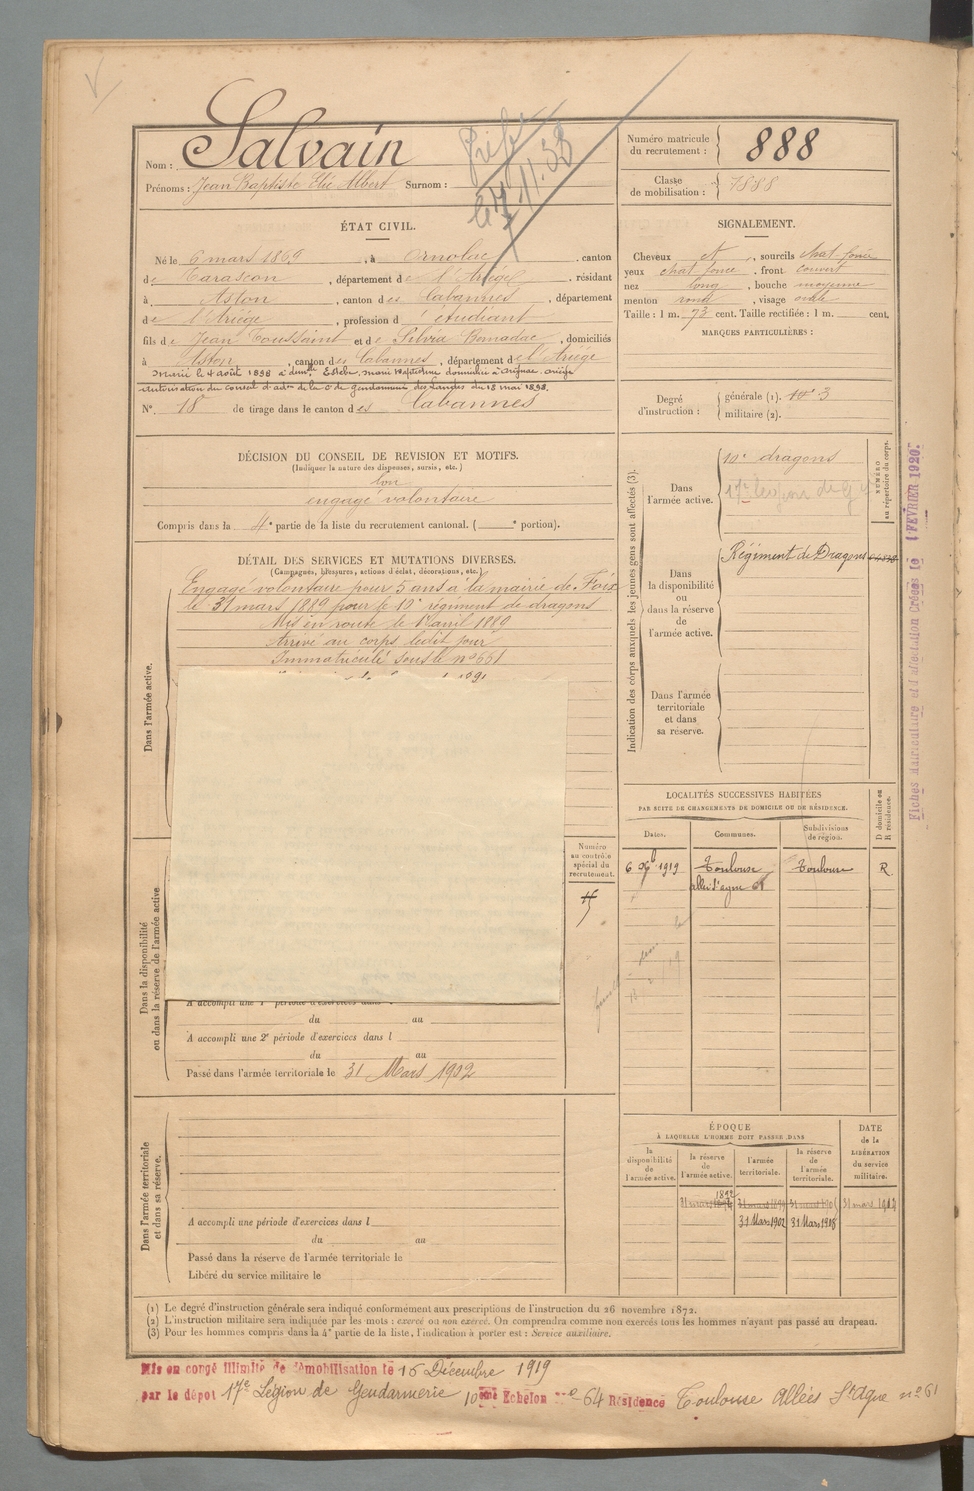 Nom : Salvain
Prénoms : Jean Baptiste Elie Albert Surnom :
7.11.38
Numéro matricule du recrutement : 888
Classe de mobilisation : 1888
ÉTAT CIVIL.
Né le 6 mars 1869, à Ornolac, canton
de Tarascon, département de l'Ariège, résidant
à Aston, canton des Cabannes, département
de l'Ariège, profession d'étudiant
fils de Jean Toussaint et de Silvia Bomadac, domiciliés
à Aston, canton des Cabannes, département de l'Ariège
Marié le 4 août 1898 à demlle Estebe, domiciliée à Arignac Ariège
Autorisation du conseil d'adon de la Cie de gendarmerie des Landes du 18 mai 1898.
No. 18 de tirage dans le canton des Cabannes
SIGNALEMENT.
Cheveux et, sourcils chat-foncé
yeux chat foncé, front couvert
nez long, bouche moyenne
menton rond, visage ovale
Taille : 1 m. 73 cent. Taille rectifiée : 1 m. cent.
MARQUES PARTICULIÈRES :
Degré d'instruction : générale (1). 3
militaire (2).
DÉCISION DU CONSEIL DE REVISION ET MOTIFS.
(Indiquer la nature des dispenses, sursis, etc.)
bon
engagé volontaire
Compris dans la 4e partie de la liste du recrutement cantonal. ( e portion).
DÉTAIL DES SERVICES ET MUTATIONS DIVERSES.
(Campagnes, blessures, actions d'éclat, décorations, etc.)
Dans l'armée active.
Engagé volontaire pour 5 ans à la mairie de Foix
le 31 mars 1889 pour le 10e régiment de dragons
Mis en route le 1er avril 1889
Arrivé au corps ledit jour
Immatriculé sous le no 661
Dans la disponibilité
ou dans la réserve de l'armée active
Numéro au contrôle spécial du recrutement.
A accompli une 1re période d'exercices dans
du au
A accompli une 2e période d'exercices dans l
du au
Passé dans l'armée territoriale le 31 Mars 1902
Dans l'armée territoriale
et dans sa réserve.
A accompli une période d'exercices dans l
du au
Passé dans la réserve de l'armée territoriale le
Libéré du service militaire le
Indication des corps auxquels les jeunes gens sont affectés (3).
NUMÉRO au répertoire du corps.
Dans l'armée active.
10e dragons
17e Légion de
Dans la disponibilité ou dans la réserve de l'armée active.
Régiment de Dragons
Dans l'armée territoriale et dans sa réserve.
LOCALITÉS SUCCESSIVES HABITÉES
PAR SUITE DE CHANGEMENTS DE DOMICILE OU DE RÉSIDENCE.
Dates. Communes. Subdivisions de région. D domicile ou R résidence.
6 1919 Toulouse Toulouse R
61
ÉPOQUE
À LAQUELLE L'HOMME DOIT PASSER DANS
la disponibilité de l'armée active. la réserve de l'armée active. l'armée territoriale. la réserve de l'armée territoriale. DATE de la LIBÉRATION du service militaire.
1892
31 mars 1894 31 mars 1899 31 mars 190 31 mars 19
31 Mars 1902 31 Mars 1908
(1) Le degré d'instruction générale sera indiqué conformément aux prescriptions de l'instruction du 26 novembre 1872.
(2) L'instruction militaire sera indiquée par les mots : exercé ou non exercé. On comprendra comme non exercés tous les hommes n'ayant pas passé au drapeau.
(3) Pour les hommes compris dans la 4e partie de la liste, l'indication à porter est : Service auxiliaire.
Mis en congé illimité de démobilisation le 15 Décembre 1919
par le dépôt 17e Légion de Gendarmerie 10ème Echelon No 64 Résidence Toulouse Allées St Agne no 61
Fiches Matriculaire et d'affectation Créées le 1 FEVRIER 1920.